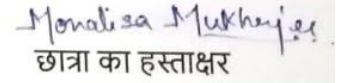 Monalisa Mukherjee
छात्रा का हस्ताक्षर